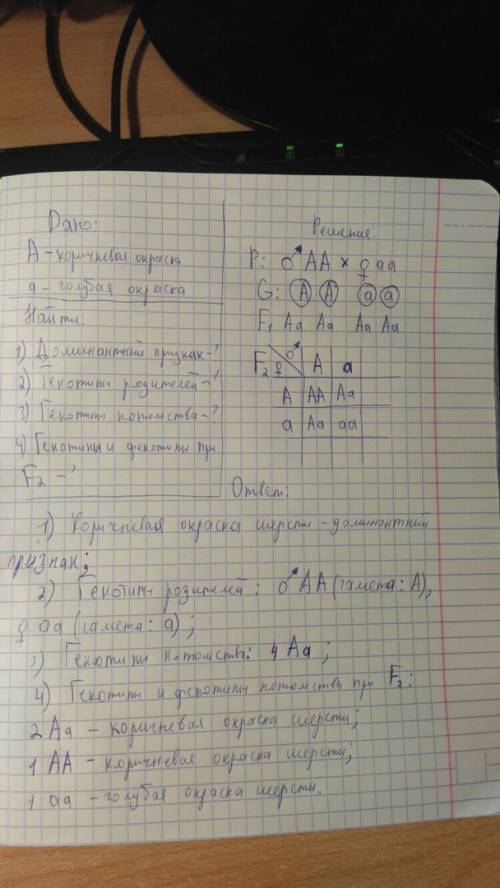 Дано:
А - коричневая окраска
а - голубая окраска
Найти:
1) Доминантный признак - ?
2) Генотипы родителей - ?
3) Генотипы потомства - ?
4) Генотипы и фенотипы при
F2 - ?
Решение:
P: ♂ AA × ♀ aa
G: A A a a
F1 Aa Aa Aa Aa
F2 ♀ ♂ A a
A AA Aa
a Aa aa
Ответ:
1) Коричневая окраска шерсти - доминантный
признак;
2) Генотипы родителей: ♂ AA (гамета: A),
♀ aa (гамета: a);
3) Генотипы потомства: 4 Aa;
4) Генотипы и фенотипы потомства при F2:
2 Aa - коричневая окраска шерсти;
1 AA - коричневая окраска шерсти;
1 aa - голубая окраска шерсти.